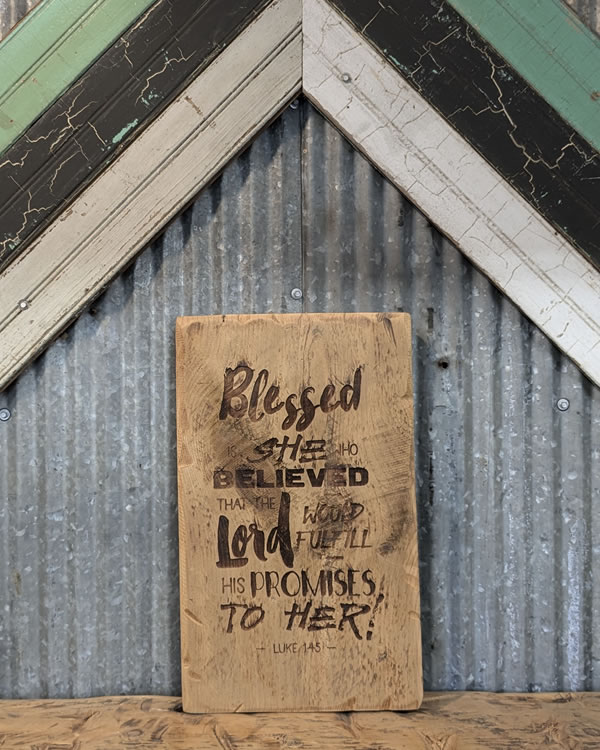 Blessed
IS SHE WHO
BELIEVED
THAT THE
Lord WOULD
FULFILL
HIS PROMISES
TO HER!
- LUKE 1:45 -